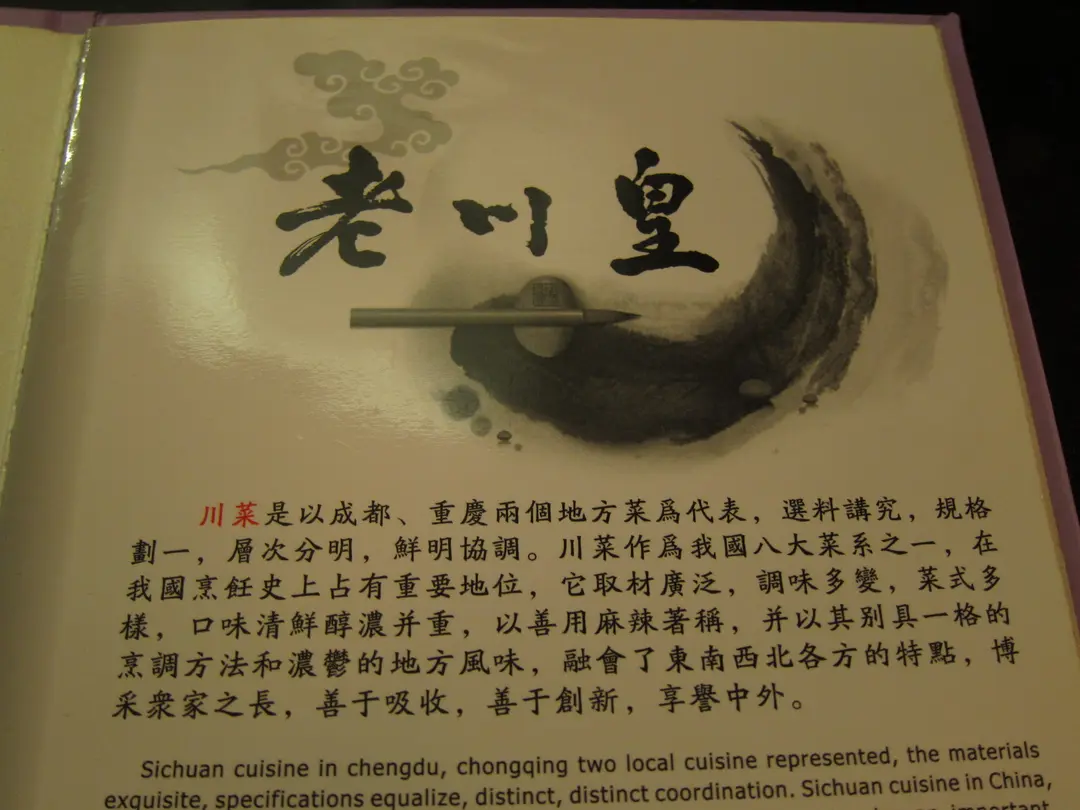 老川皇
川菜是以成都、重慶兩個地方菜爲代表，選料講究，規格
劃一，層次分明，鮮明協調。川菜作爲我國八大菜系之一，在
我國烹飪史上占有重要地位，它取材廣泛，調味多變，菜式多
樣，口味清鮮醇濃并重，以善用麻辣著稱，并以其别具一格的
烹調方法和濃鬱的地方風味，融會了東南西北各方的特點，博
采衆家之長，善于吸收，善于創新，享譽中外。
Sichuan cuisine in chengdu, chongqing two local cuisine represented, the materials
exquisite, specifications equalize, distinct, distinct coordination. Sichuan cuisine in China,
important